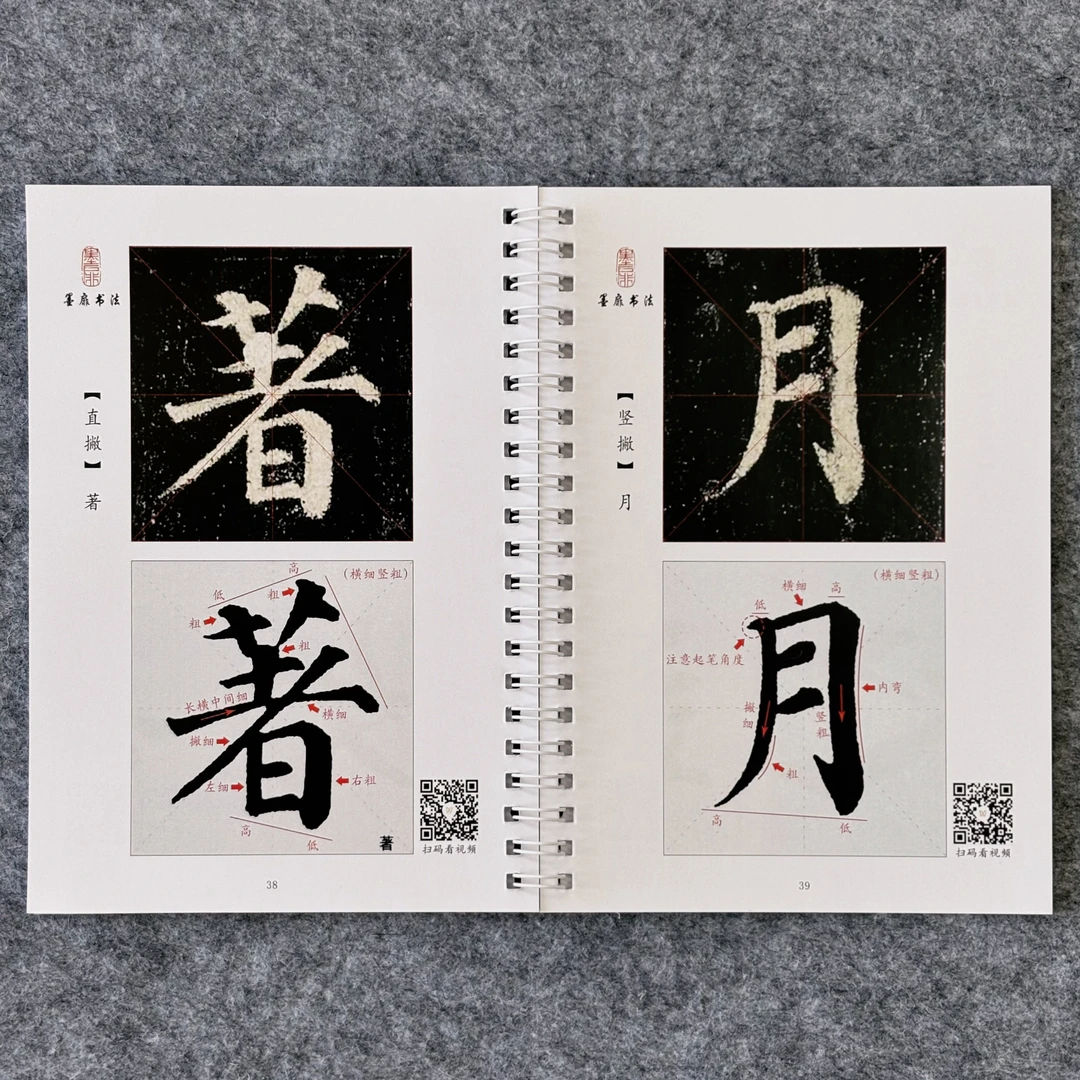 墨扉书法
【直撇】 著
著
高
(横细竖粗)
低
粗
粗
粗
长横中间细
横细
撇细
左细
右粗
高
低
著
著
扫码看视频
38
墨扉书法
【竖撇】 月
月
(横细竖粗)
横细
高
低
注意起笔角度
内弯
撇细
竖粗
粗
高
低
月
扫码看视频
39